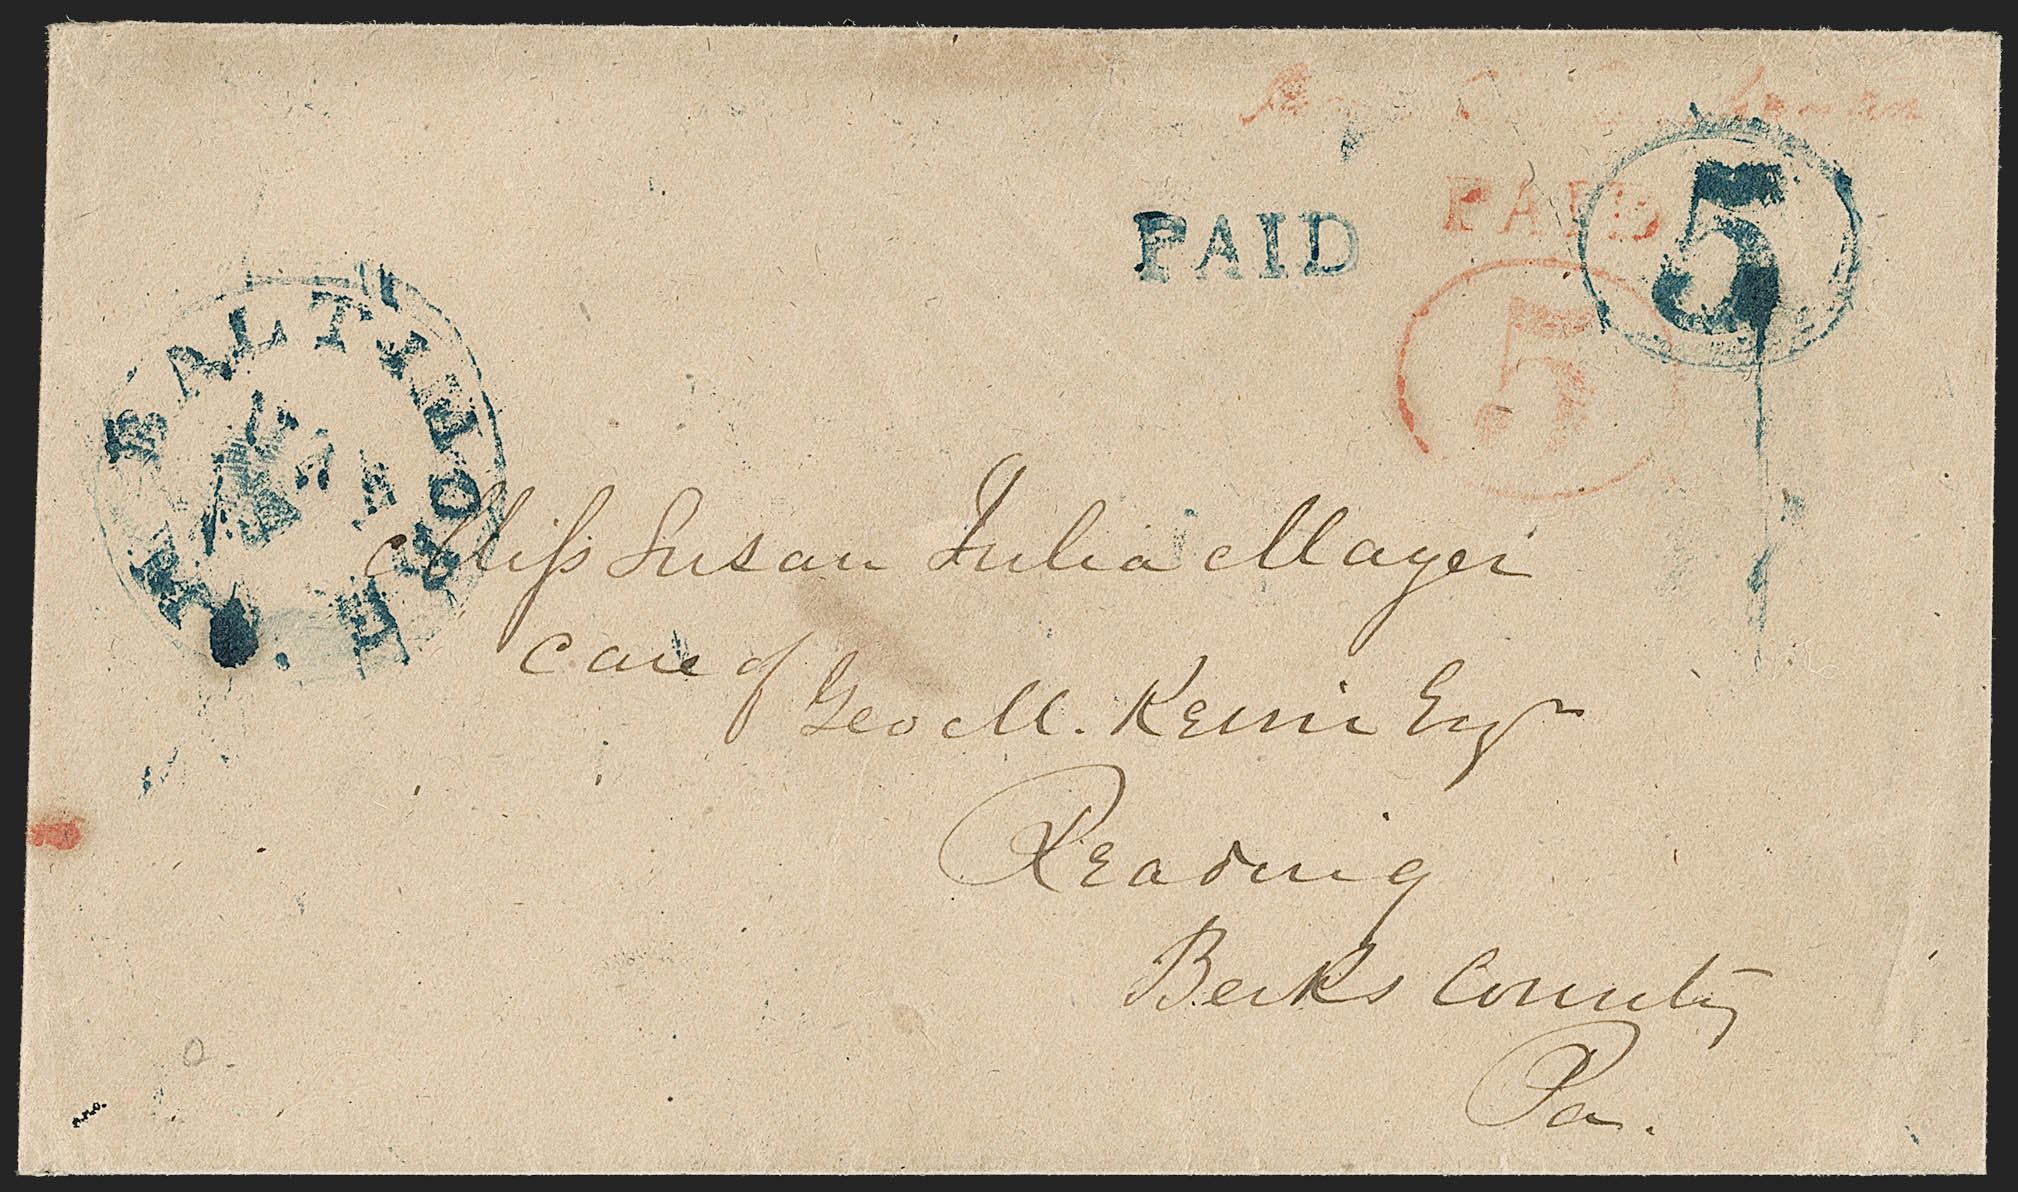 PAID
PAID
5
5
BALTIMORE
Miſs Susan Julia Mayer
Care of
Geo M. Keim Esqr
Reading
Berks County
Pa.